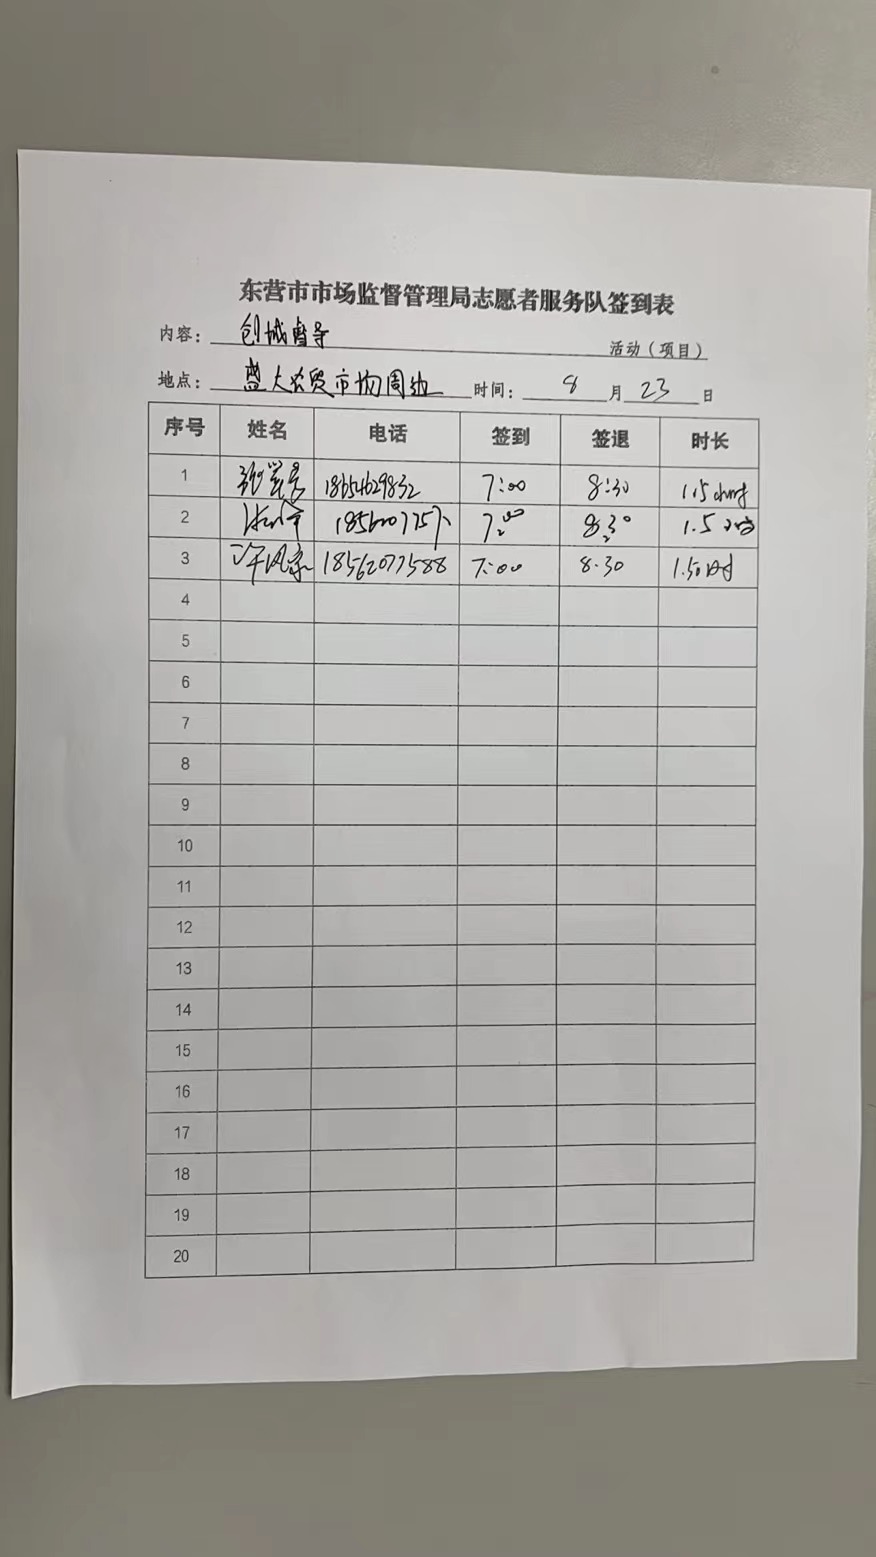 东营市市场监督管理局志愿者服务队签到表
内容：创城督导 活动（项目）
地点：盛大农贸市场周边 时间：8月23日
序号 姓名 电话 签到 签退 时长
1 18654629832 7:00 8:30 1.5小时
2 7:00 8:30 1.5小时
3 18562077588 7:00 8:30 1.5小时
4
5
6
7
8
9
10
11
12
13
14
15
16
17
18
19
20